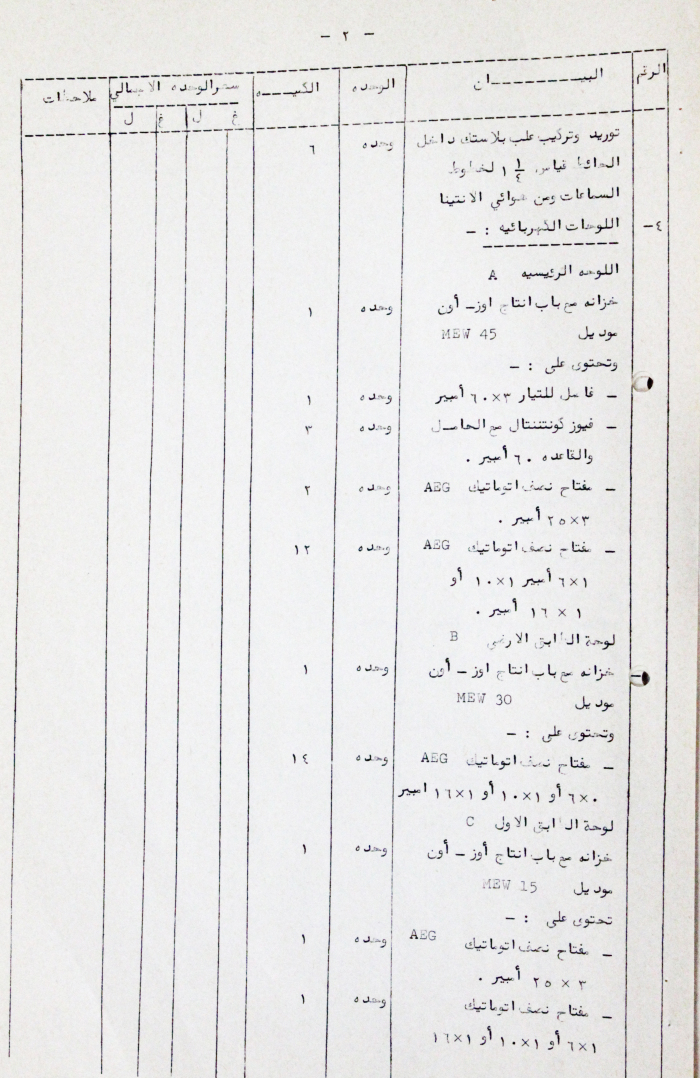 - ٢ -
الرقم البيـــــــان الوحده الكميـــه سعر الوحده الاجمالي ملاحظات
غ ل غ ل
توريد وتركيب علب بلاستك داخل وحده ٦
الحائط قياس ١ ١/٤ لخطوط
السماعات ومن هوائي الانتينا
٤- اللوحات الكهربائيه : -
اللوحه الرئيسيه A
خزانه مع باب انتاج اوز - أون وحده ١
موديل MEW 45
وتحتوى على : -
- فاصل للتيار ٣×٦٠ أمبير وحده ١
- فيوز كونتننتال مع الحامــل وحده ٣
والقاعده ٦٠ أمبير .
- مفتاح نصف اتوماتيك AEG وحده ٢
٣×٢٥ أمبير .
- مفتاح نصف اتوماتيك AEG وحده ١٢
١×٦ أمبير ١×١٠ أو
١ × ١٦ أمبير .
لوحة الطابق الارضي B
خزانه مع باب انتاج اوز - أون وحده ١
موديل MEW 30
وتحتوى على : -
- مفتاح نصف اتوماتيك AEG وحده ١٤
٠×٦ أو ١×١٠ أو ١×١٦ امبير
لوحة الطابق الاول C
خزانه مع باب انتاج أوز - أون وحده ١
موديل MEW 15
تحتوى على : -
- مفتاح نصف اتوماتيك AEG وحده ١
٣ × ٢٥ أمبير .
- مفتاح نصف اتوماتيك وحده ١
١×٦ أو ١×١٠ أو ١×١٦